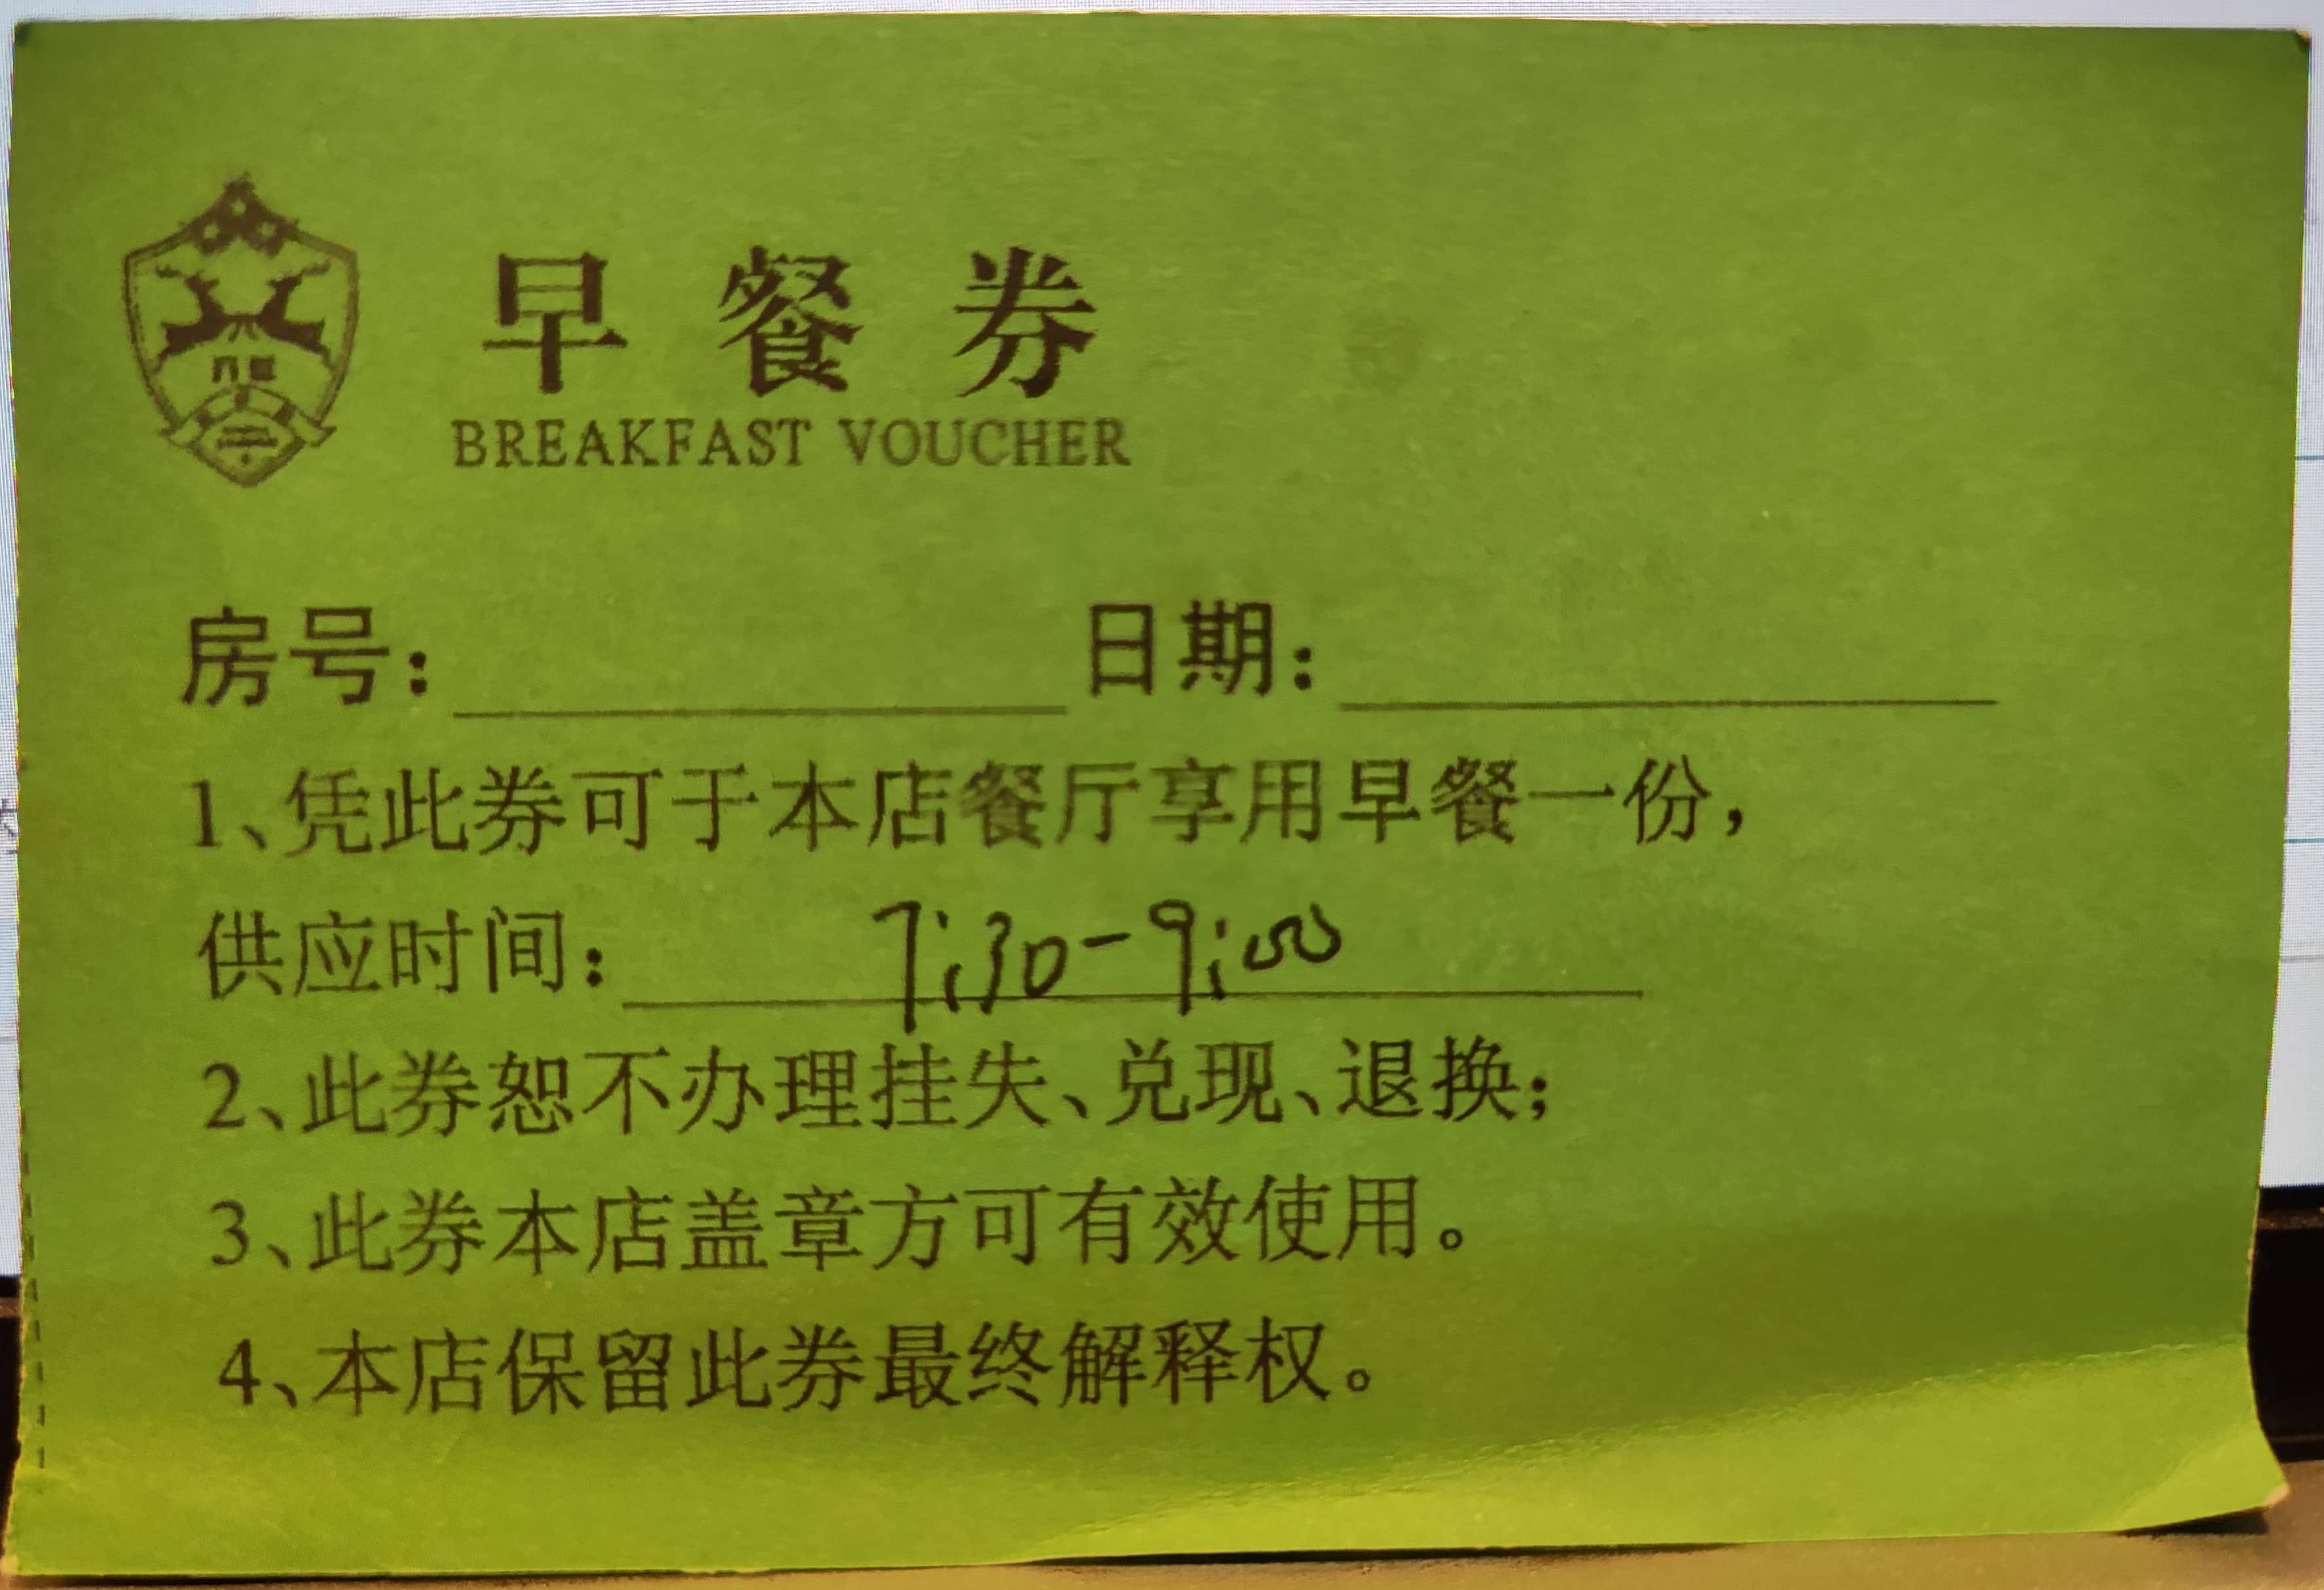 早餐券
BREAKFAST VOUCHER
房号：
日期：
1、凭此券可于本店餐厅享用早餐一份，
供应时间：7:30-9:00
2、此券恕不办理挂失、兑现、退换；
3、此券本店盖章方可有效使用。
4、本店保留此券最终解释权。